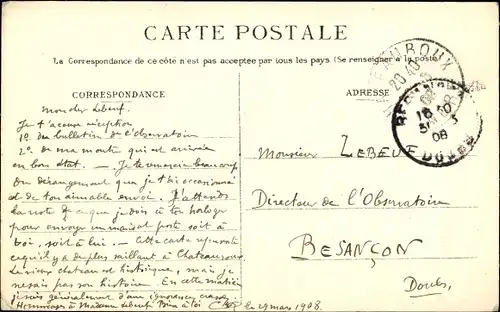 CARTE POSTALE
La Correspondance de ce côté n'est pas acceptée par tous les pays (Se renseigner à la poste)
CORRESPONDANCE
ADRESSE
Mon cher Lebeuf.
Je t'accuse réception
1º du bulletin de l'Observatoire
2º de ma montre qui est arrivée
en bon état. — Je te remercie beaucoup
du dérangement que je t'ai occasionné
et de ton aimable envoi. J'attends
la note de ce que je dois à ton horloger
pour envoyer un mandat poste soit à
toi, soit à lui. — Cette carte représente
ce qu'il y a de plus saillant à Chateauroux.
Le vieux chateau est historique, mais je
ne sais pas son histoire. En cette matière
je suis généralement d'une ignorance crasse.
Hommages à Madame Lebeuf. Bien à toi
le 29 mars 1908.
Monsieur LEBEUF
Directeur de l'Observatoire
BESANÇON
Doubs.
20 40
BESANÇON
16 30
08
DOUBS